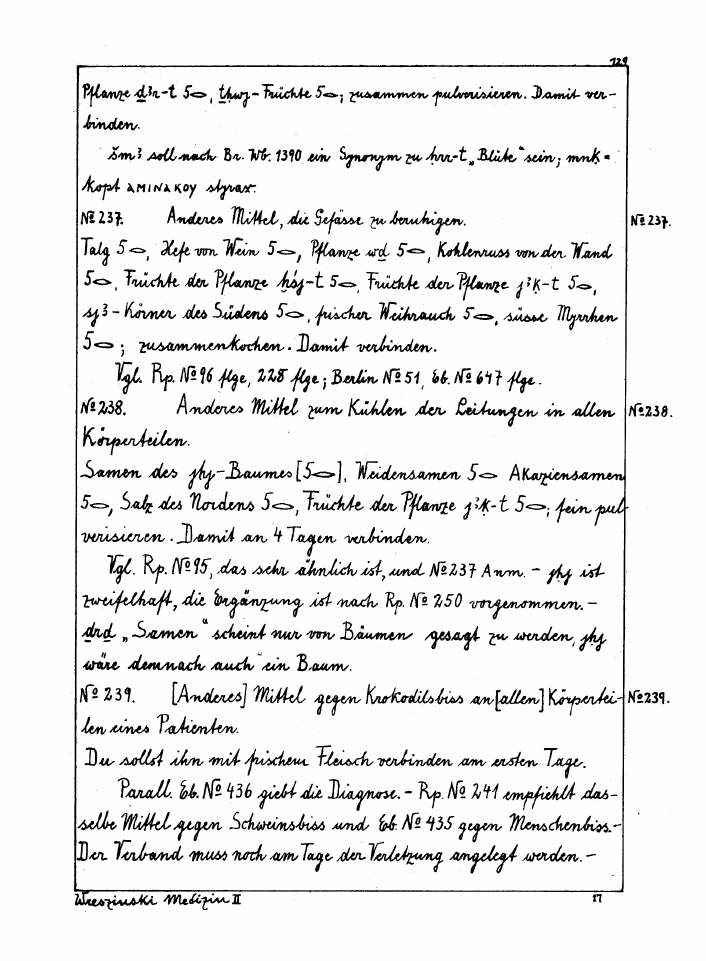 129
Pflanze ḏꜣr-t 5⬭, ṯhwj-Früchte 5⬭; zusammen pulverisieren. Damit ver-
binden.
šmꜣ soll nach Br. Wb. 1390 ein Synonym zu ḥrr-t „Blüte" sein; mnk =
kopt ⲁⲙⲓⲛⲁⲕⲟⲩ styrax.
№ 237. Anderes Mittel, die Gefässe zu beruhigen. № 237.
Talg 5⬭, Hefe von Wein 5⬭, Pflanze wḏ 5⬭, Kohlenruss von der Wand
5⬭, Früchte der Pflanze 5⬭, Früchte der Pflanze jꜣḳ-t 5⬭,
sjꜣ-Körner des Südens 5⬭, frischer Weihrauch 5⬭, süsse Myrrhen
5⬭; zusammenkochen. Damit verbinden.
Vgl. Rp. № 96 flge, 228 flge; Berlin № 51, Eb. № 647 flge.
№ 238. Anderes Mittel zum Kühlen der Leitungen in allen № 238.
Körperteilen.
Samen des -Baumes [5⬭], Weidensamen 5⬭ Akaziensamen
5⬭, Salz des Nordens 5⬭, Früchte der Pflanze jꜣḳ-t 5⬭; fein pul-
verisieren. Damit an 4 Tagen verbinden.
Vgl. Rp. № 95, das sehr ähnlich ist, und № 237 Anm. – ist
zweifelhaft, die Ergänzung ist nach Rp. № 250 vorgenommen. –
ḏrḏ „Samen" scheint nur von Bäumen gesagt zu werden,
wäre demnach auch ein Baum.
№ 239. [Anderes] Mittel gegen Krokodilsbiss an [allen] Körpertei- № 239.
len eines Patienten.
Du sollst ihn mit frischem Fleisch verbinden am ersten Tage.
Parall. Eb. № 436 giebt die Diagnose. – Rp. № 241 empfiehlt das-
selbe Mittel gegen Schweinsbiss und Eb. № 435 gegen Menschenbiss. –
Der Verband muss noch am Tage der Verletzung angelegt werden. –
Wreszinski Medizin II 17